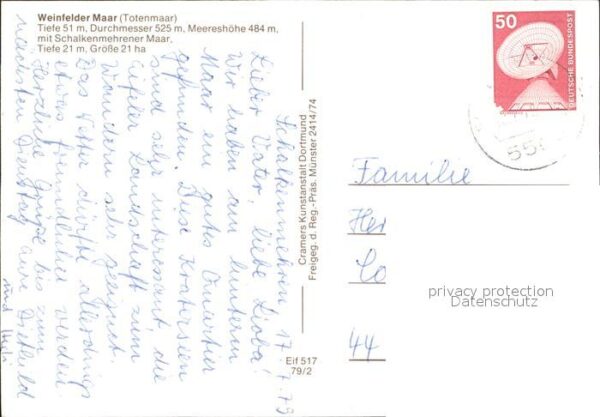 Weinfelder Maar (Totenmaar)
Tiefe 51 m, Durchmesser 525 m, Meereshöhe 484 m,
mit Schalkenmehrener Maar,
Tiefe 21 m, Größe 21 ha
Schalkenmehren 17.7.79
Lieber Vater, liebe Lioba!
Wir haben am hinteren
Maar ein gutes Quartier
gefunden. Diese Kraterseen
sind sehr interessant, die
Eifeler Landschaft zum
Wandern sehr geeignet.
Das Wetter dürfte allerdings
etwas freundlicher werden.
Herzliche Grüße bis zum
nächsten Dienstag eure Dietlild
und
Cramers Kunstanstalt Dortmund
Freigeg. d. Reg.-Präs. Münster 2414/74
Eif 517
79/2
50
DEUTSCHE BUNDESPOST
55
Familie
Her
Co
44
privacy protection
Datenschutz